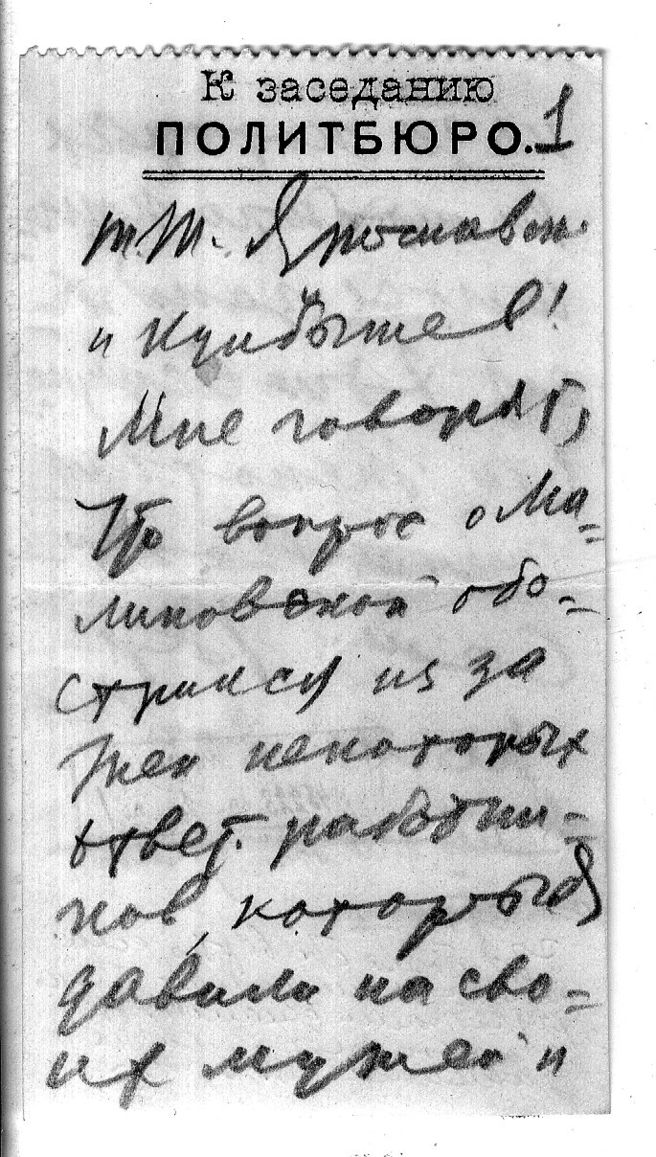 К заседанию
ПОЛИТБЮРО. 1
т.т. Ярославск.
и Куйбышев!
Мне говорят,
что вопрос о Ма=
линовской обо=
стрился из за
жен некоторых
ответ. работни=
ков, которые
давили на сво=
их мужей и